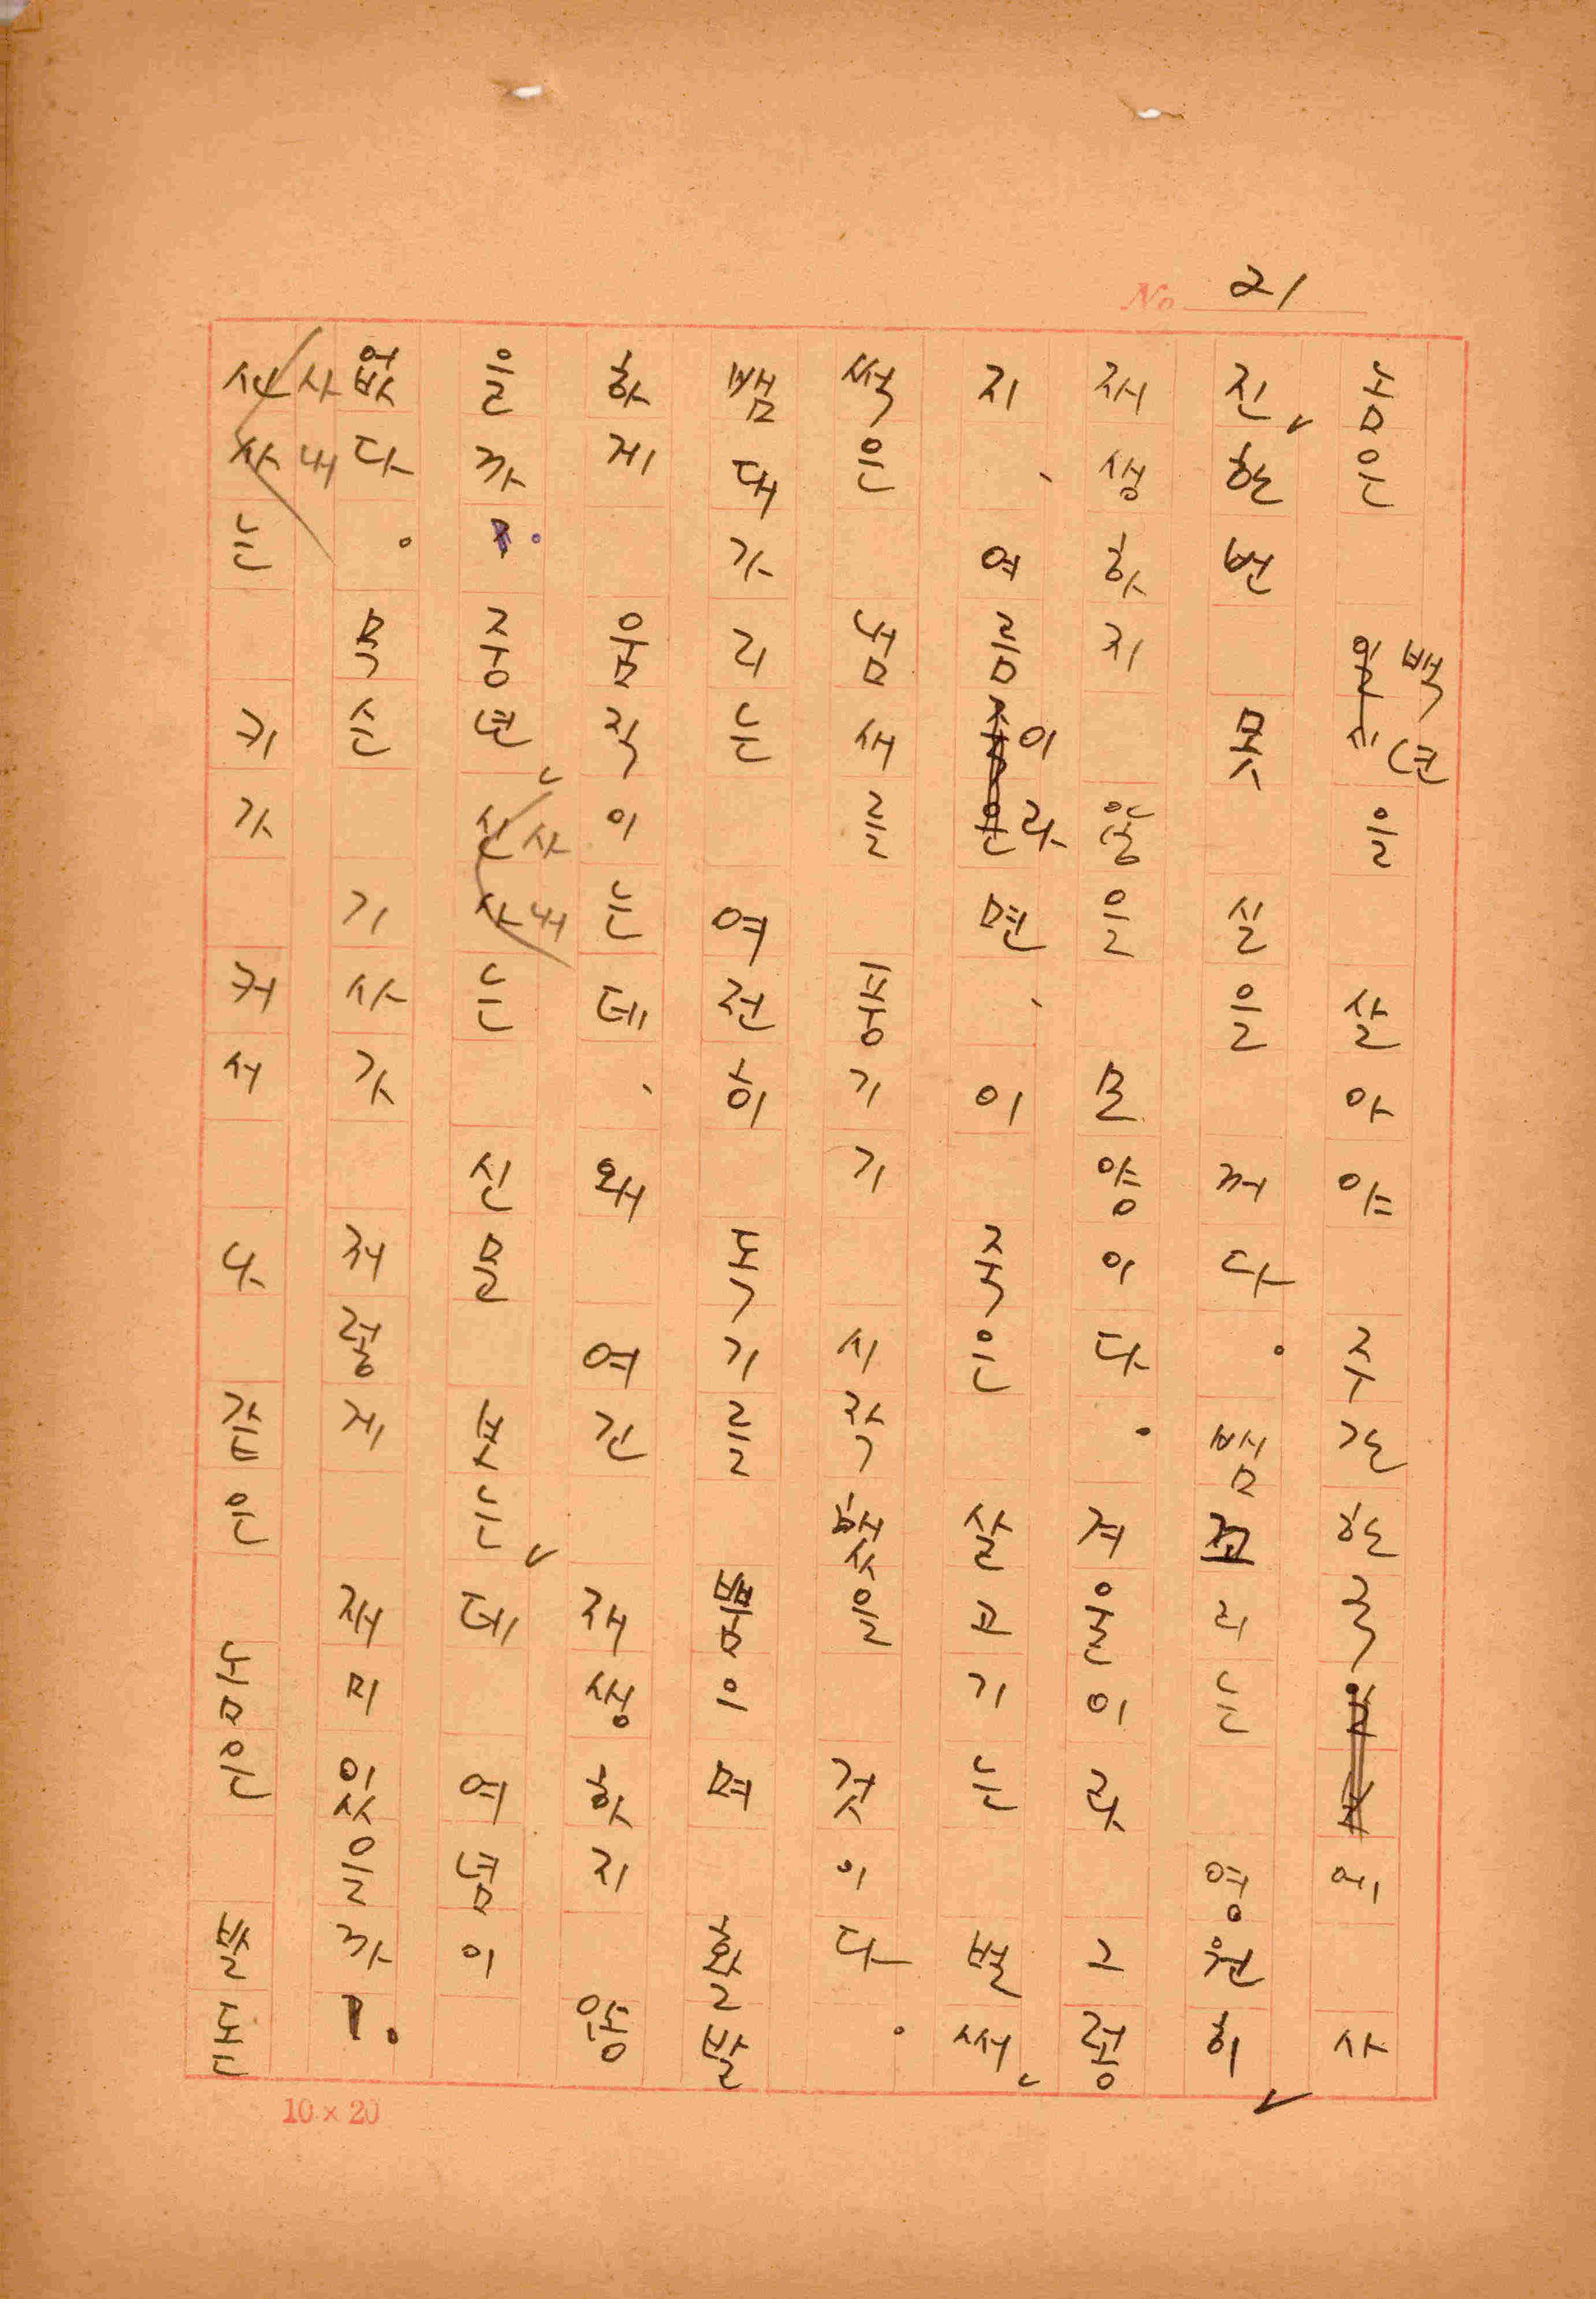 No 21
놈은 백년을 살아야 주간한국에 사
진 한번 못 실을 꺼다. 뱀꼬리는 영원히
재생하지 않을 모양이다. 겨울이라 그렇
지、여름이라면、이 죽은 살고기는 벌써
썩은 냄새를 풍기기 시작했을 것이다.
뱀대가리는 여전히 독기를 뿜으며 활발
하게 움직이는데、왜 여긴 재생하지 않
을까. 중년 사내는 신문 보는데 여념이
없다. 무슨 기사가 저렇게 재미있을까.
사내는 키가 커서 나 같은 놈인 발돋
10×20